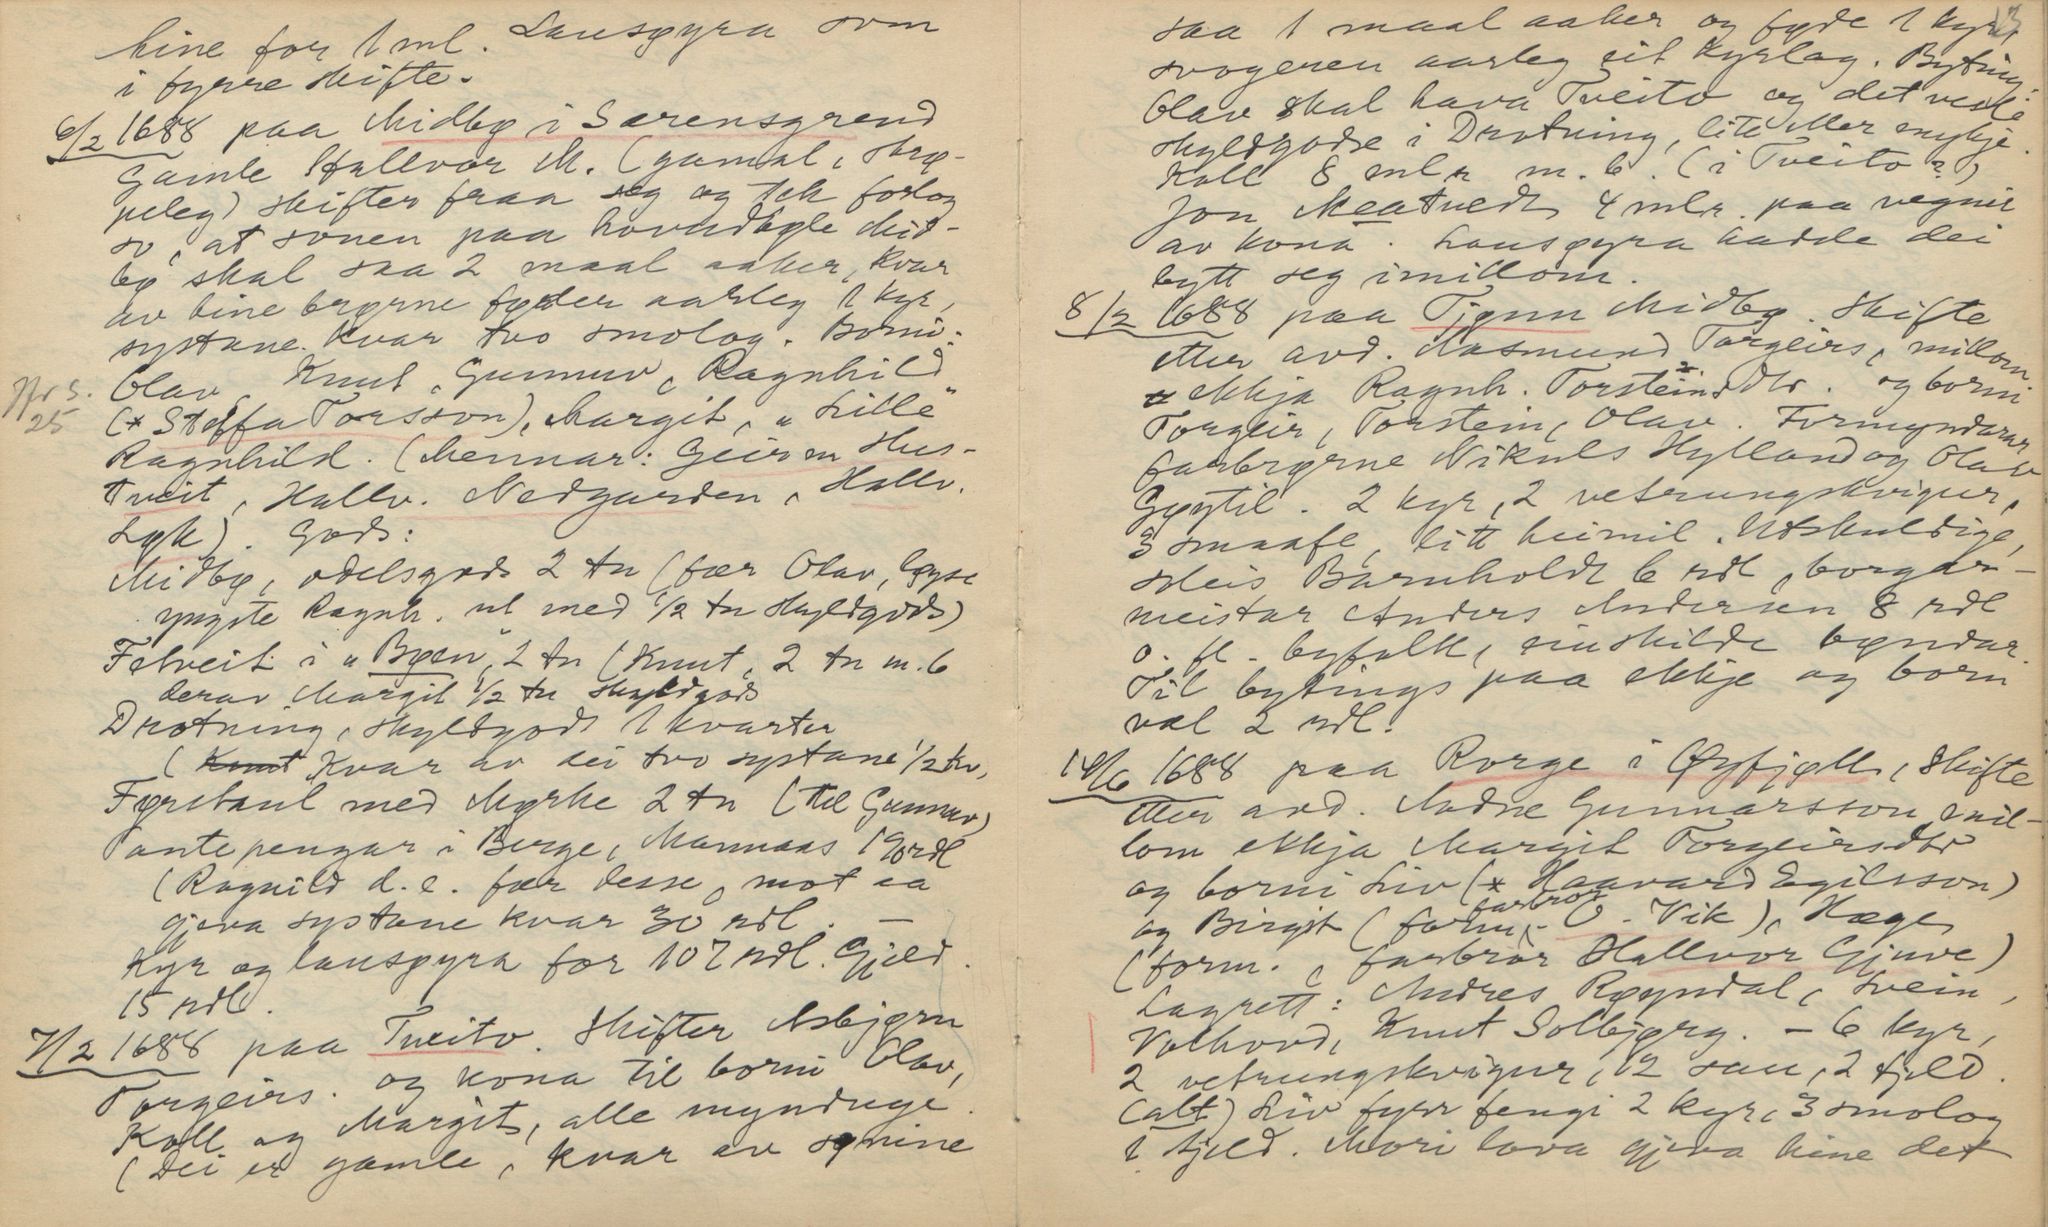 hine for 1 ml. Lausøyra som
i fyrre skifte.
6/2 1688 paa Midbø i Særensgrend
Gamle Hallvor M. (gamal, skrø-
peleg) skifter fraa seg og tek forlog
so, at sonen paa hovudbøle Mid-
bø skal saa 2 maal aaker, kvar
av hine brørne føder aarleg 1 kyr,
systane kvar tvo smolog. Borni:
Jfr S. 25
Olav, Knut, Gunnuv, Ragnhild
(* Steffa Torsson), Margit, "Litle"
Ragnhild. (Mennar: Geirm Hus-
tveit, Hallv. Nedgarden, Hallv.
Løk). Gods:
Midbø, odelsgods 2 tn (fær Olav, løyse
yngste Ragnh. ut med 1/2 tn skyldgods)
Fetveit i "Bøen", 2 tn (Knut, 2 tn m. b
derav Margit 1/2 tn skyldgods
Drotning, skyldgods 1 kvarter
(Knut Kvar av dei tvo systane 1/2 kv.
Førstaul med Mørke 2 tn (til Gunnuv)
Pantepengar i Berge, Mannaas 190 rdl
(Ragnild d. e. fær desse, mot aa
gjeva systane kvar 30 rdl. —
Kyr og lausøyra for 107 rdl. Gjeld
15 rdl.
7/2 1688 paa Tveito. Skifter Asbjørn
Torgeirs. og kona til borni Olav,
Koll og Margit, alle mynduge.
(Dei er gamle, kvar av sønine
13
saa 1 maal aaker og føde 1 kyr,
svogeren aarleg eit kyrlag. Byting:
Olav skal hava Tveito og det vesle
skyldgodse i Drotning, lite eller mykje.
Koll 8 mlr m. b. (i Tveito?)
Jon Meatvedt 4 mlr. paa vegnir
av kona. Lausøyra hadde dei
bytt seg imillom.
8/2 1688 paa Tjønn Midbø. Skifte
etter avd. Aasmund Torgeirs, millom
ekkja Ragnh. Torsteinsdtr. og borni
Torgeir, Torstein, Olav. Formyndarar
farbrørne Nikuls Hylland og Olav
Gøytil. 2 kyr, 2 vetrungskvigur,
3 smaafe, litt heimil. Utskuldige,
Meis Barnholdt 6 rdl, borgar-
meistar Anders Andersen 8 rdl
o. fl. byfolk, einskilde bøndar.
Til bytings paa ekkje og born
vel 2 rdl.
14/6 1688 paa Rorge i Øyfjøll, skifte
etter avd. Andre Gunnarsson, mil-
lom ekkja Margit Torgeirsdtr
og borni Liv (* Haavard Egilsson)
og Birgit (form. farbror O. Vik), Hæge
(form., farbror Hallvor Gjuve)
Lagrett: Andres Røyndal, Svein
Valhovd, Knut Solbjørg. — 6 kyr,
2 vetrungskvigur, 12 sau, 2 fjeld.
(alt) Liv fyrr fengi 2 kyr, 3 smolog
1 fjeld. Mori lova gjeva hine det